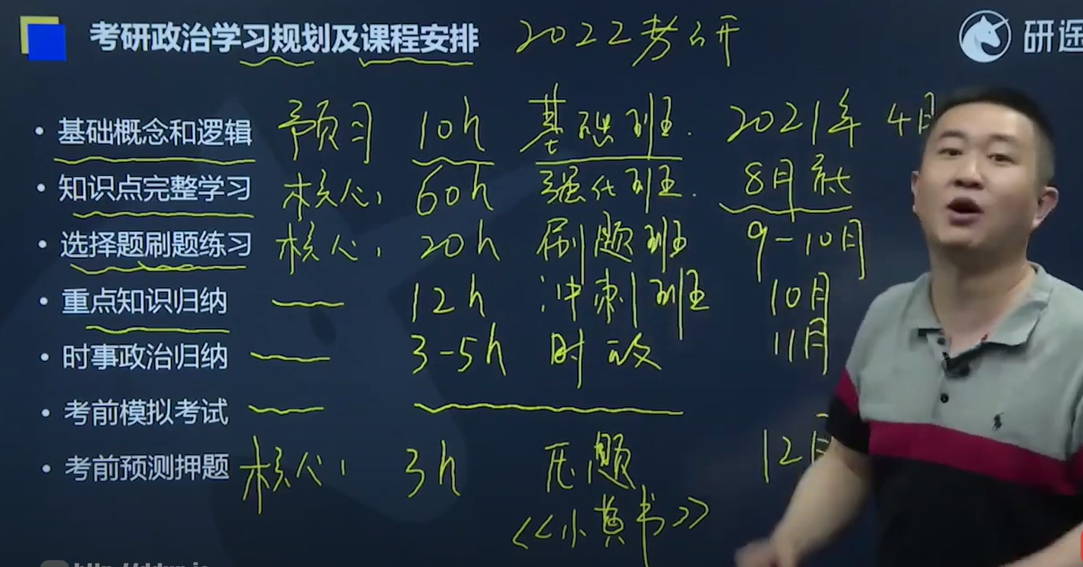 考研政治学习规划及课程安排 2022考研
研途
• 基础概念和逻辑 预习 10h 基础班. 2021年 4月
• 知识点完整学习 核心: 60h 强化班. 8月底
• 选择题刷题练习 核心: 20h 刷题班 9-10月
• 重点知识归纳 —— 12h 冲刺班 10月
• 时事政治归纳 —— 3-5h 时政 11月
• 考前模拟考试 ——
• 考前预测押题 核心: 3h 压题 12月
<<小黄书>>